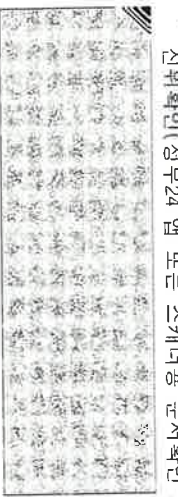 진위확인(정부24 앱 또는 스캐너용 문서확인